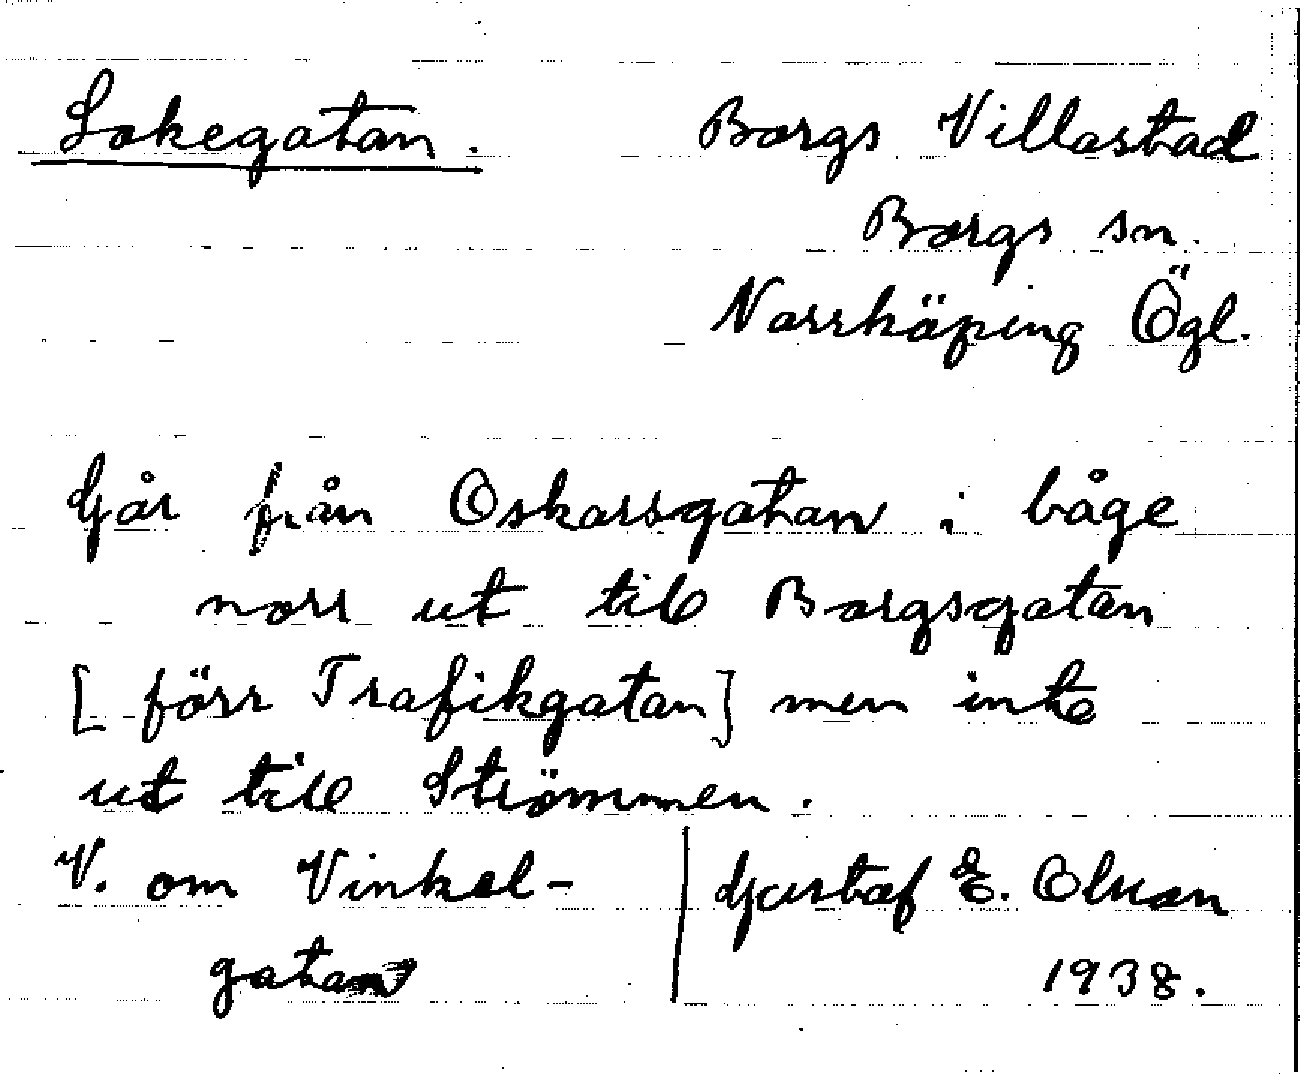 Lokegatan. Borgs Villastad
Borgs sn.
Norrköping Ögl.
Går från Oskarsgatan i båge
norr ut till Borgsgatan
[förr Trafikgatan] men inte
ut till Strömmen.
V. om Vinkel-
gatan
Gustaf E. Olsson
1938.